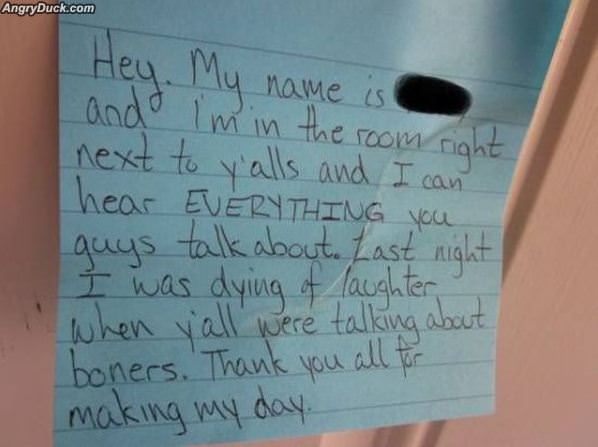 AngryDuck.com
Hey. My name is
and i'm in the room right
next to y'alls and I can
hear EVERYTHING you
guys talk about. Last night
I was dying of laughter
when y'all were talking about
boners. Thank you all for
making my day.